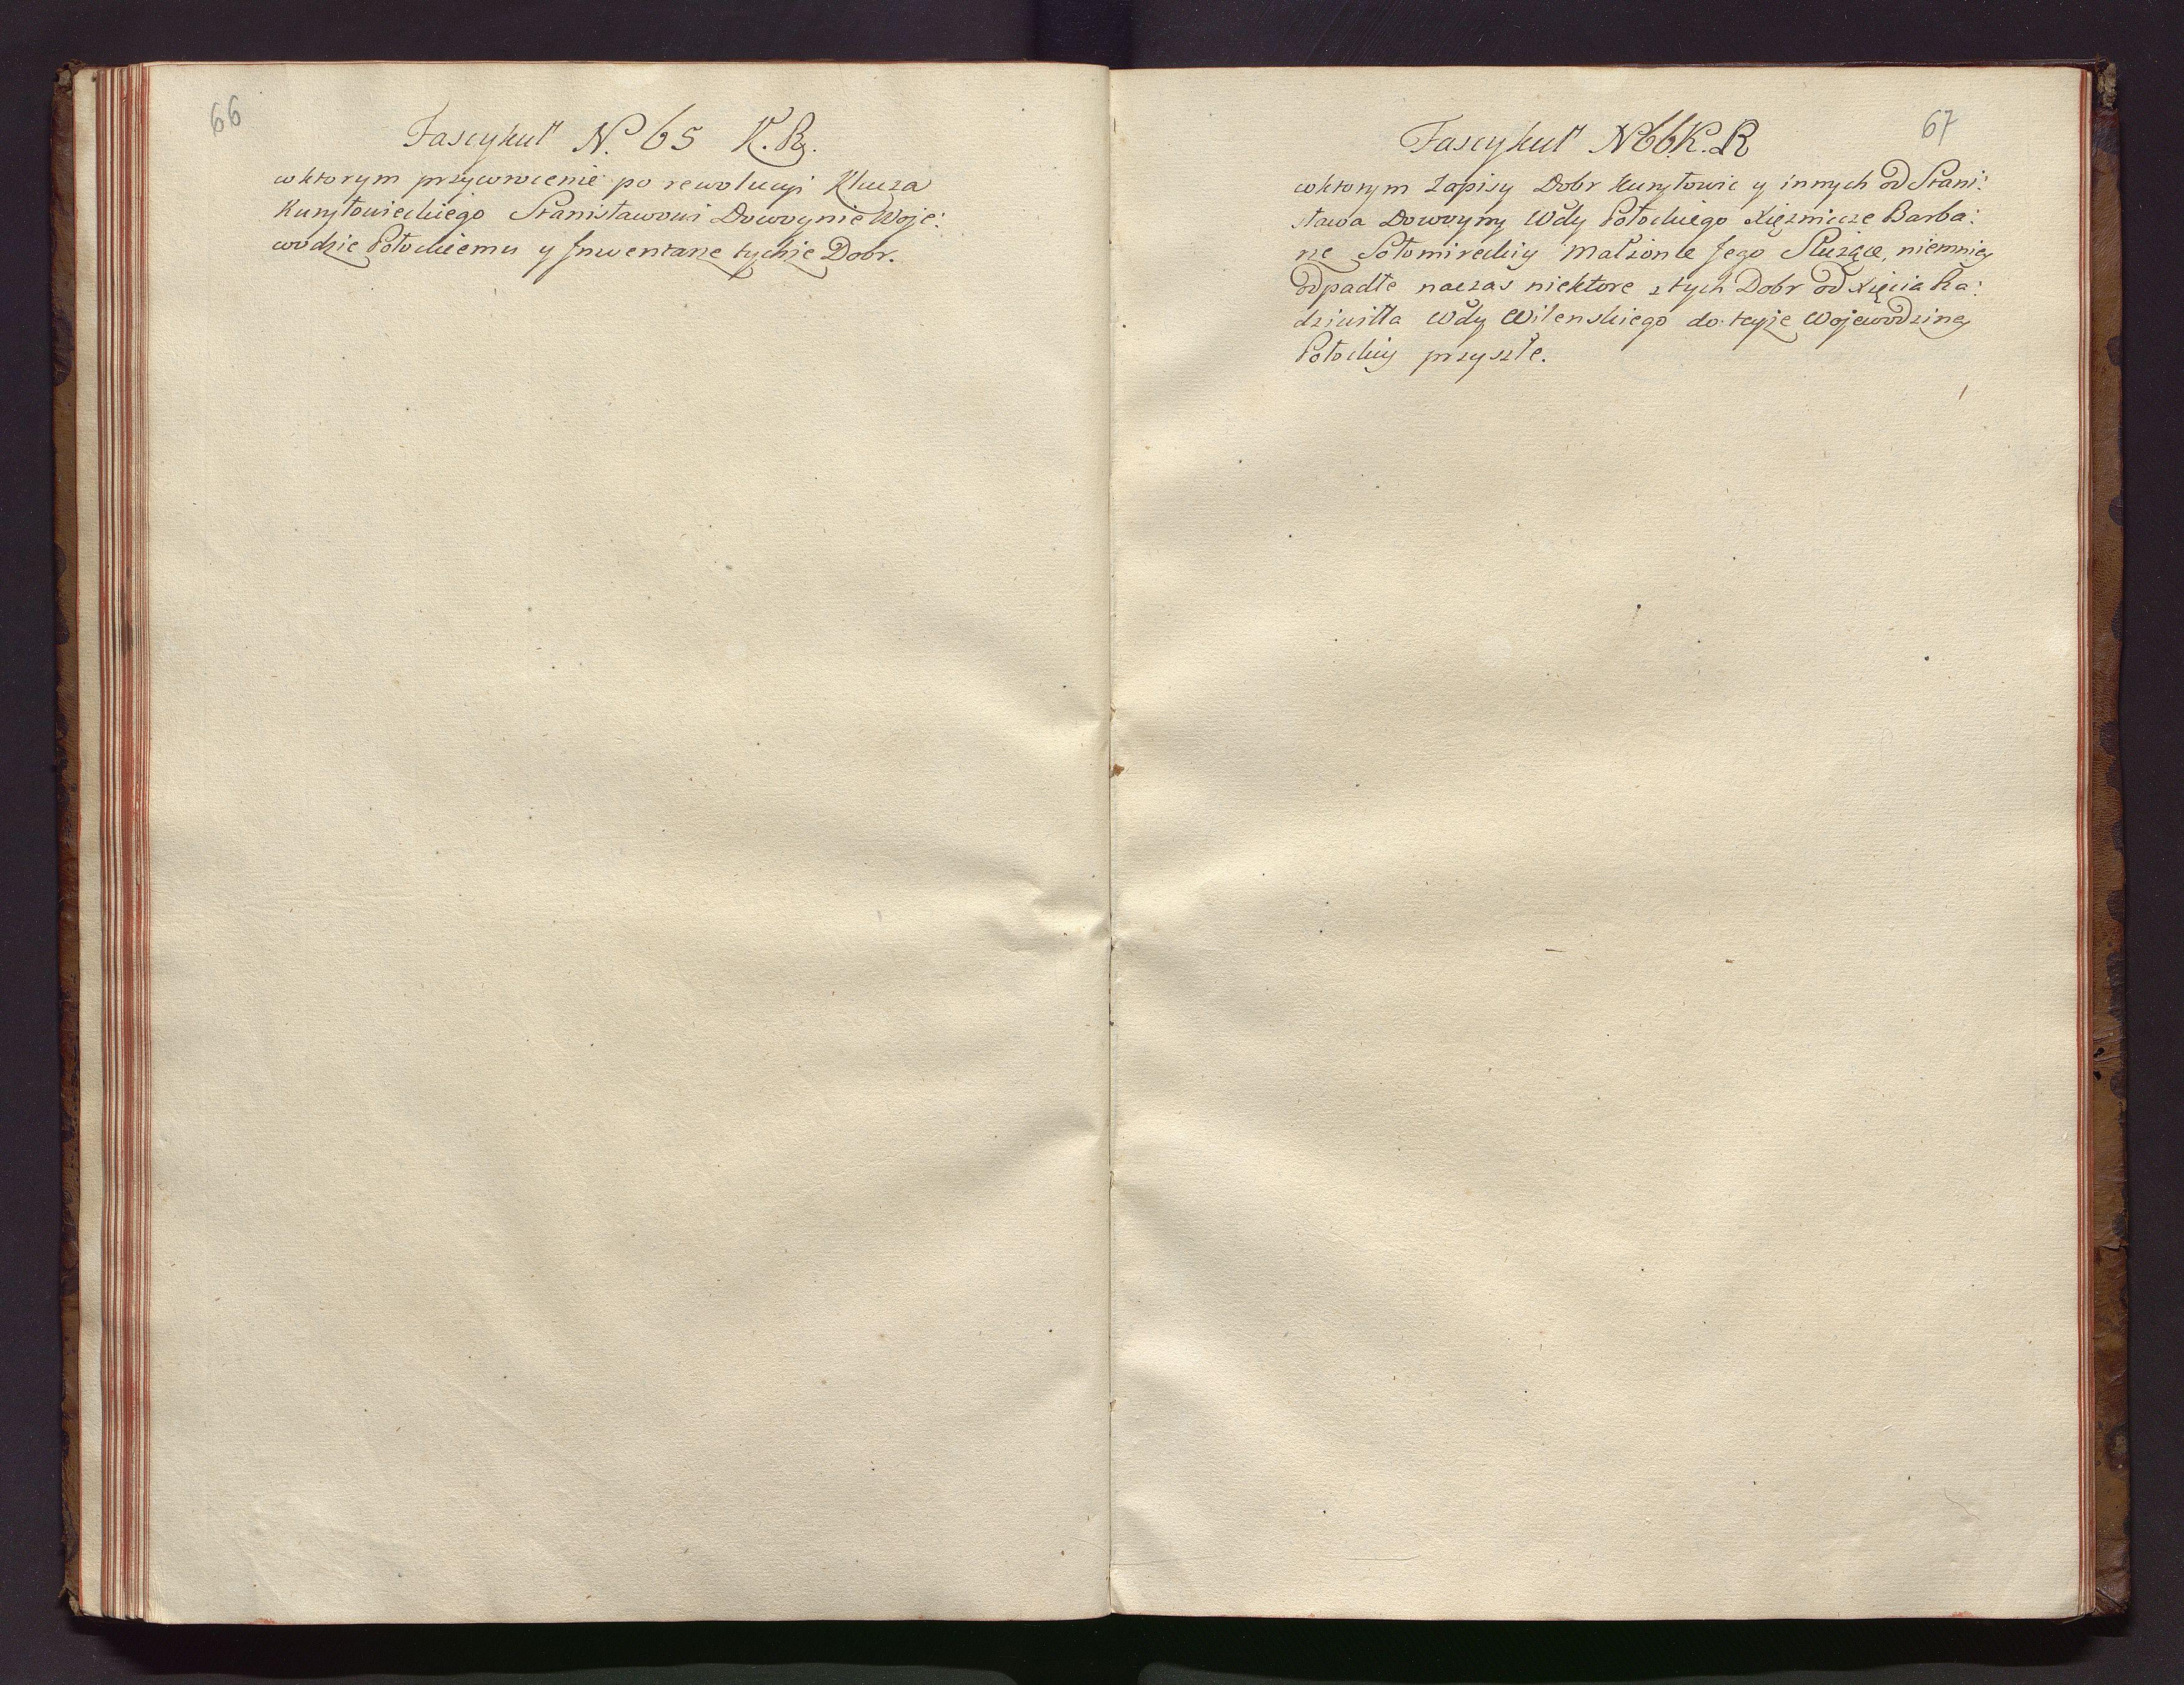 66
Fascykuł N. 65 K. R.
w ktorym przywrocenie po rewolucyi Klucza
Kuryłowieckiego Stanisławowi Dowoynie Woje:
wodzie Połockiemu y Jnwentarze tychże Dobr.
67
Fascykuł N 66 K. R
w ktorym Zapisy Dobr Kuryłowic y innych od Stani:
sława Dowoyny Wdy Połockiego Xięzniczce Barba:
rze Sołomireckiy Małzonce Jego Słuzące, niemniey
odpadłe naczas niektore z tych Dobr od Xięcia Ra:
dziwiłła Wdy Wilenskiego do teyże Wojewodziney
Połockiy przyszłe.